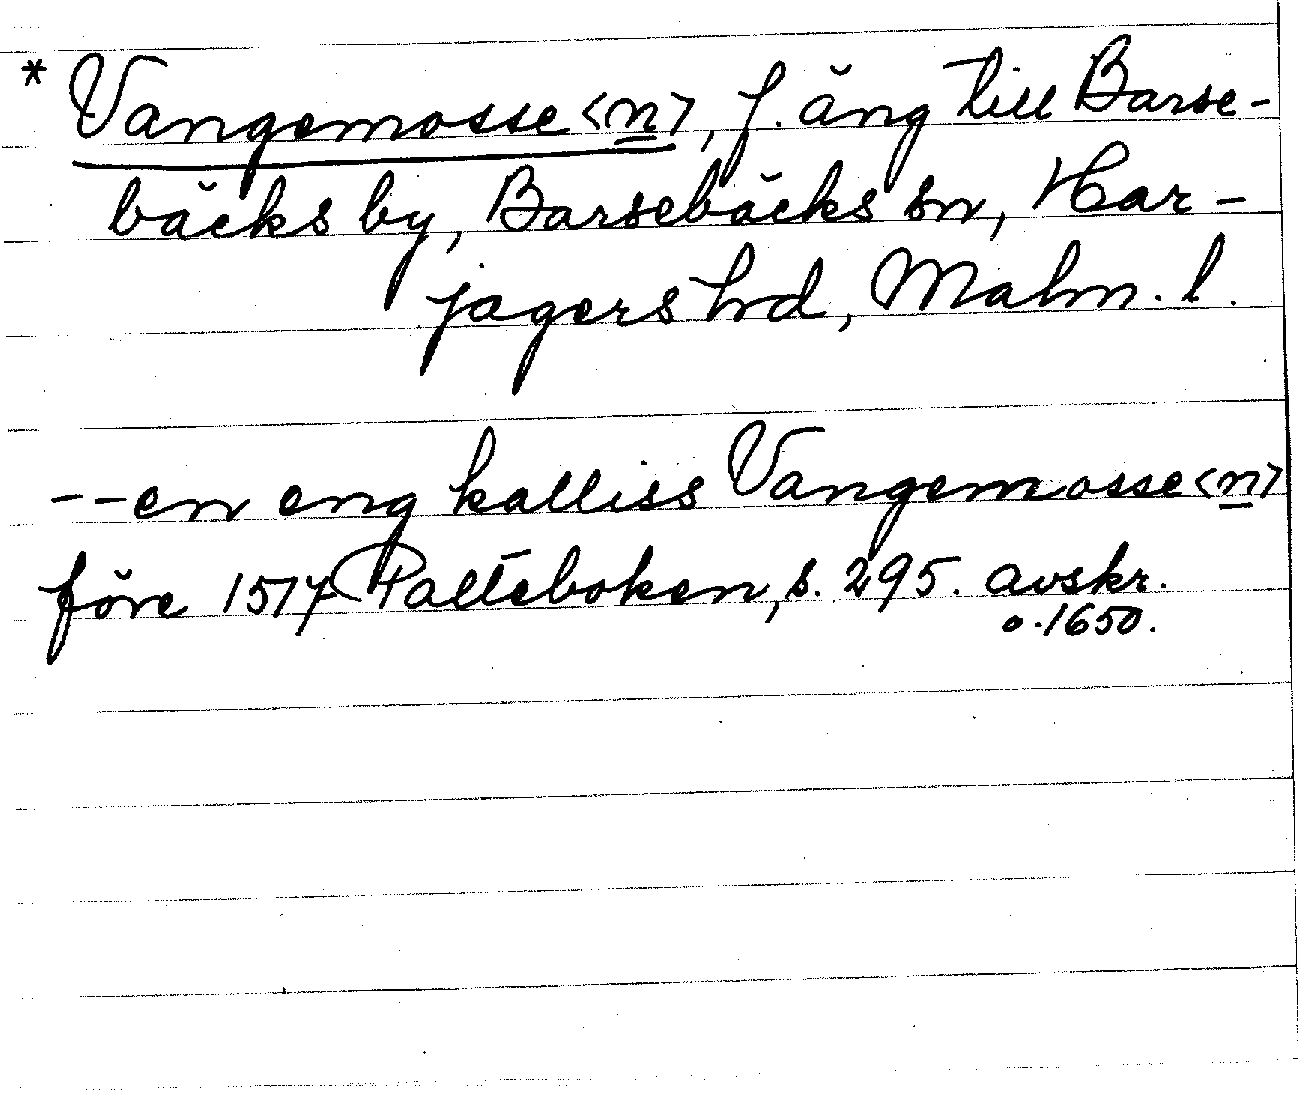 * Vangemosse<n>, f. äng till Barse-
bäcks by, Barsebäcks sn, Har-
jagers hd, Malm. l.
--en eng kalliss Vangemosse<n>
före 1517 Palteboken, s. 295. avskr.
o. 1650.